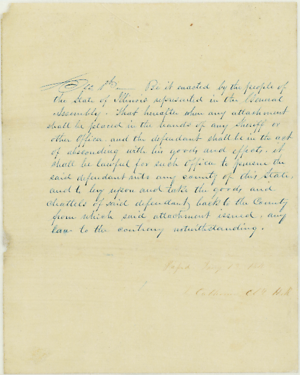 Sec 1st Be it enacted by the people of
the State of Illinois represented in the General
Assembly. That hereafter when any attachment
shall be placed in the hands of any Sheriff or
other Officer and the defendant shall be in the act
of absconding with his goods and effects. it
shall be lawful for such officer to pursue the
said defendant into any county of this State
and to levy upon and take the goods and
chattels of said defendant back to the County
from which said attachment issued. any
law to the contrary notwithstanding.